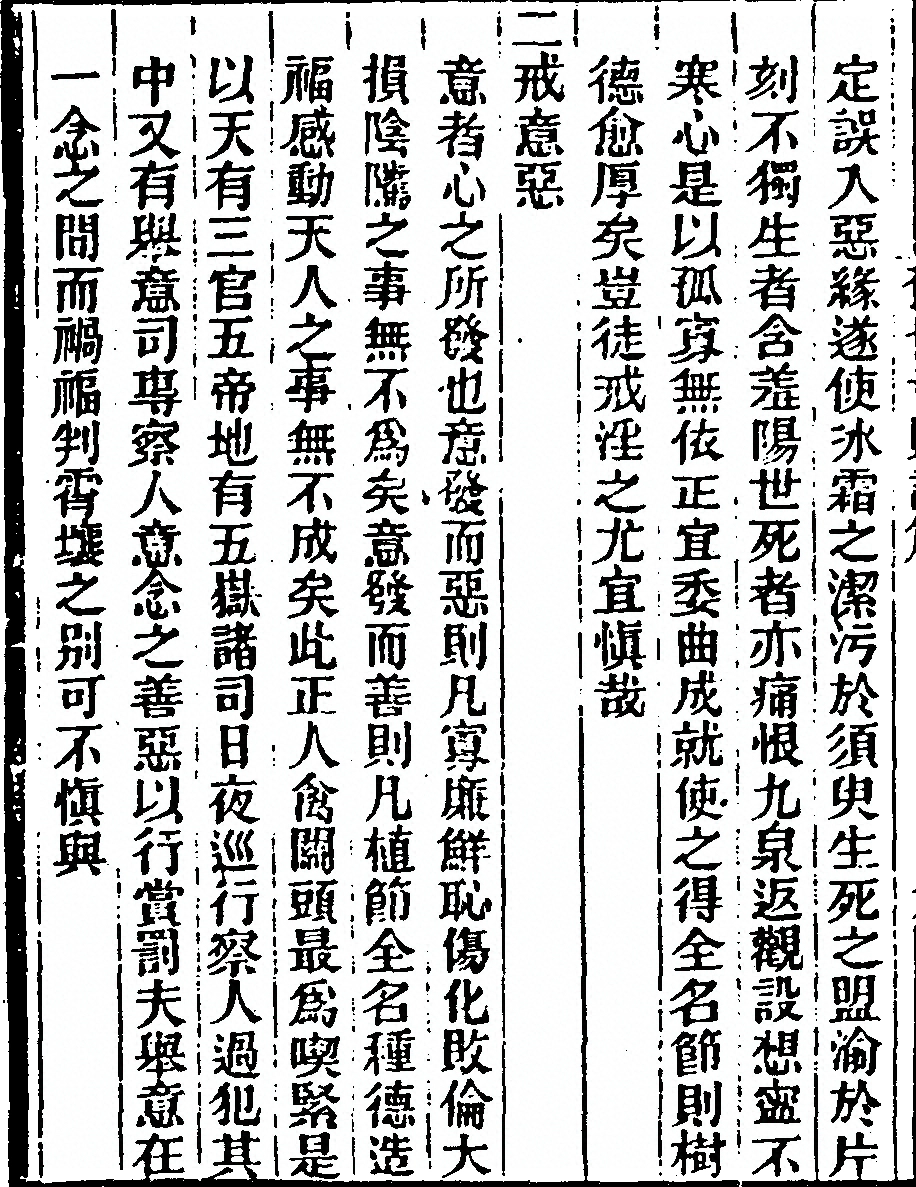 定誤入惡緣遂使冰霜之潔污於須臾生死之盟渝於片
刻不獨生者含羞陽世死者亦痛恨九泉返觀設想寧不
寒心是以孤寡無依正宜委曲成就使之得全名節則樹
德愈厚矣豈徒戒淫之尤宜愼哉
二戒意惡
意者心之所發也意發而惡則凡寡廉鮮恥傷化敗倫大
損陰隲之事無不爲矣意發而善則凡植節全名種德造
福感動天人之事無不成矣此正人禽關頭最爲喫緊是
以天有三官五帝地有五嶽諸司日夜巡行察人過犯其
中又有舉意司專察人意念之善惡以行賞罰夫舉意在
一念之間而禍福判霄壤之別可不愼與